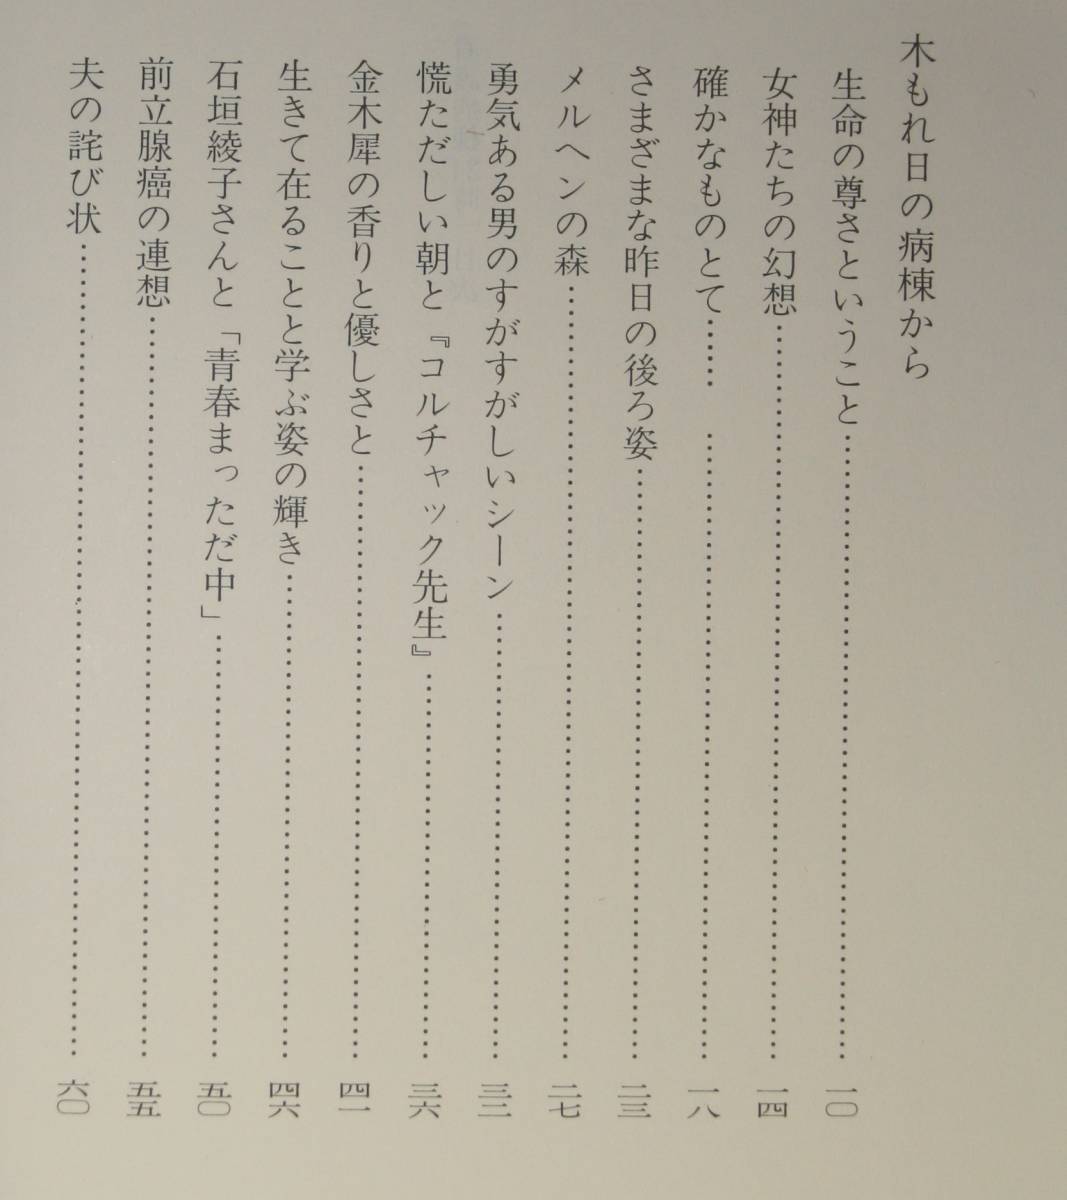 木もれ日の病棟から
生命の尊さということ……………………一〇
女神たちの幻想……………………一四
確かなものとて…… ……………………一八
さまざまな昨日の後ろ姿……………………二三
メルヘンの森……………………二七
勇気ある男のすがすがしいシーン……………………三二
慌ただしい朝と『コルチャック先生』……………………三六
金木犀の香りと優しさと……………………四一
生きて在ることと学ぶ姿の輝き……………………四六
石垣綾子さんと「青春まっただ中」……………………五〇
前立腺癌の連想……………………五五
夫の詫び状……………………六〇